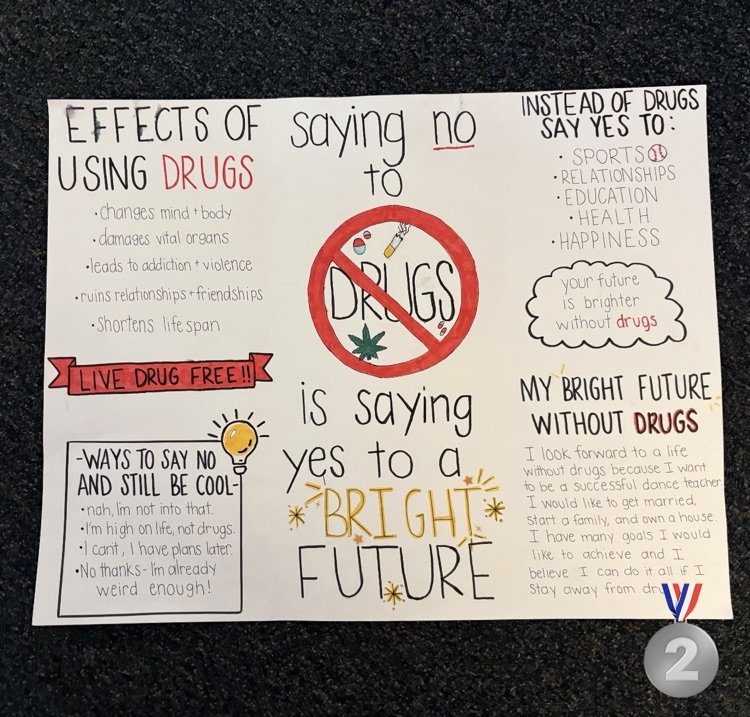 EFFECTS OF
USING DRUGS
•changes mind + body
•damages vital organs
•leads to addiction + violence
•ruins relationships + friendships
•Shortens lifespan
LIVE DRUG FREE!!
-WAYS TO SAY NO
AND STILL BE COOL-
•nah, I'm not into that.
•I'm high on life, not drugs.
•I can't, I have plans later.
•No thanks-I'm already
weird enough!
saying no
to
DRUGS
is saying
yes to a
BRIGHT
FUTURE
INSTEAD OF DRUGS
SAY YES TO:
• SPORTS
•RELATIONSHIPS
•EDUCATION
•HEALTH
•HAPPINESS
your future
is brighter
without drugs
MY BRIGHT FUTURE
WITHOUT DRUGS
I look forward to a life
without drugs because I want
to be a successful dance teacher.
I would like to get married,
start a family, and own a house.
I have many goals I would
like to achieve and I
believe I can do it all if I
stay away from
2